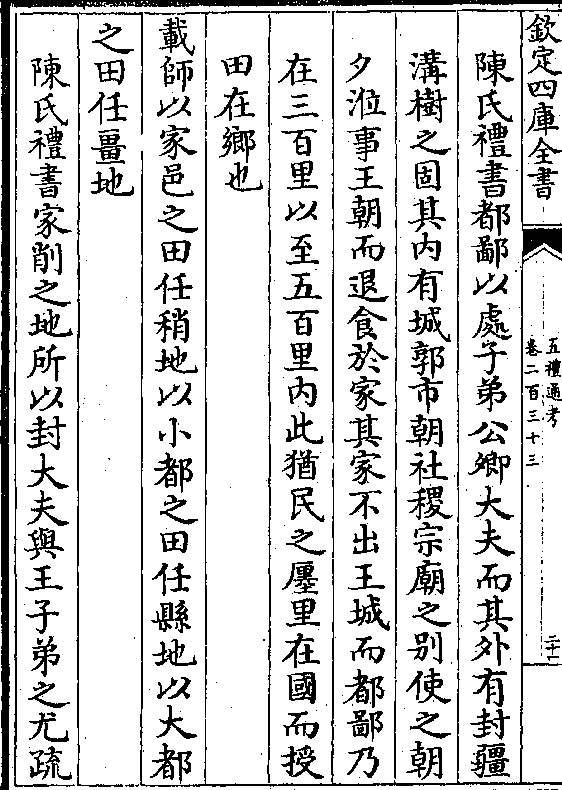 欽定四庫全書
五禮通考
卷二百三十三
二十一
陳氏禮書都鄙以處子弟公卿大夫而其外有封疆
溝樹之固其内有城郭市朝社稷宗廟之别使之朝
夕涖事王朝而退食於家其家不出王城而都鄙乃
在三百里以至五百里内此猶民之廛里在國而授
田在鄉也
載師以家邑之田任稍地以小都之田任縣地以大都
之田任畺地
陳氏禮書家削之地所以封大夫與王子弟之尤疏